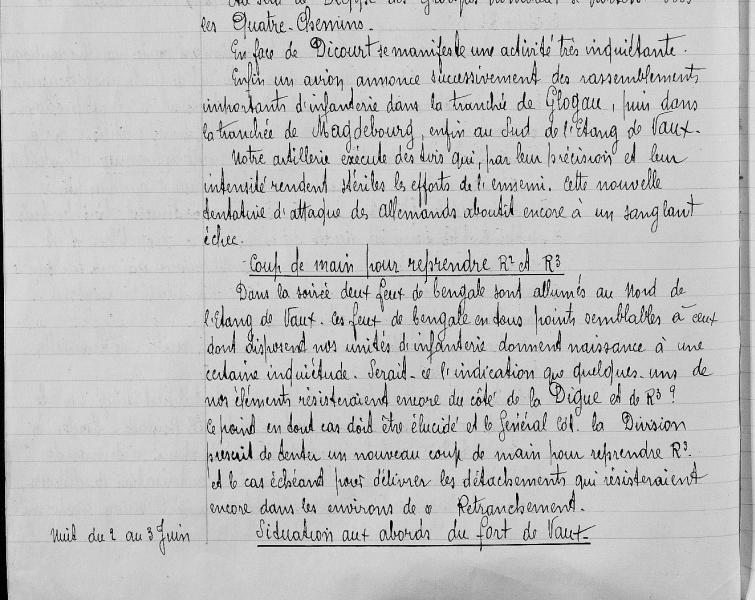 les Quatre-Chemins.
En face de Dicourt se manifeste une activité très inquiétante.
Enfin un avion annonce successivement des rassemblements
importants d'infanterie dans la tranchée de Glogau, puis dans
la tranchée de Magdebourg, enfin au Sud de l'Etang de Vaux.
Notre artillerie exécute des tirs qui, par leur précision et leur
intensité rendent stériles les efforts de l'ennemi. Cette nouvelle
tentative d'attaque des allemands aboutit encore à un sanglant
échec.
Coup de main pour reprendre R2 et R3
Dans la soirée deux feux de bengale sont allumés au Nord de
l'Etang de Vaux. Ces feux de bengale en tous points semblables à ceux
dont disposent nos unités d'infanterie donnent naissance à une
certaine inquiétude. Serait-ce l'indication que quelques-uns de
nos éléments résisteraient encore du côté de la Digue et de R3 ?
Ce point en tout cas doit être élucidé et le Général Cdt. la Division
prescrit de tenter un nouveau coup de main pour reprendre R3.
et le cas échéant pour délivrer les détachements qui résisteraient
encore dans les environs de ce Retranchement.
Nuit du 2 au 3 Juin Situation aux abords du fort de Vaux